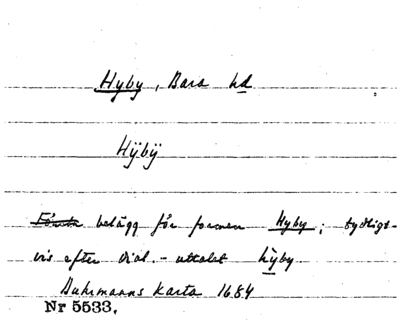 Hyby, Bara hd
Hÿbÿ
Första belägg för formen Hyby; tydligt-
vis efter dial.-uttalet hỳby
Buhrmanns karta 1684
Nr 5533.